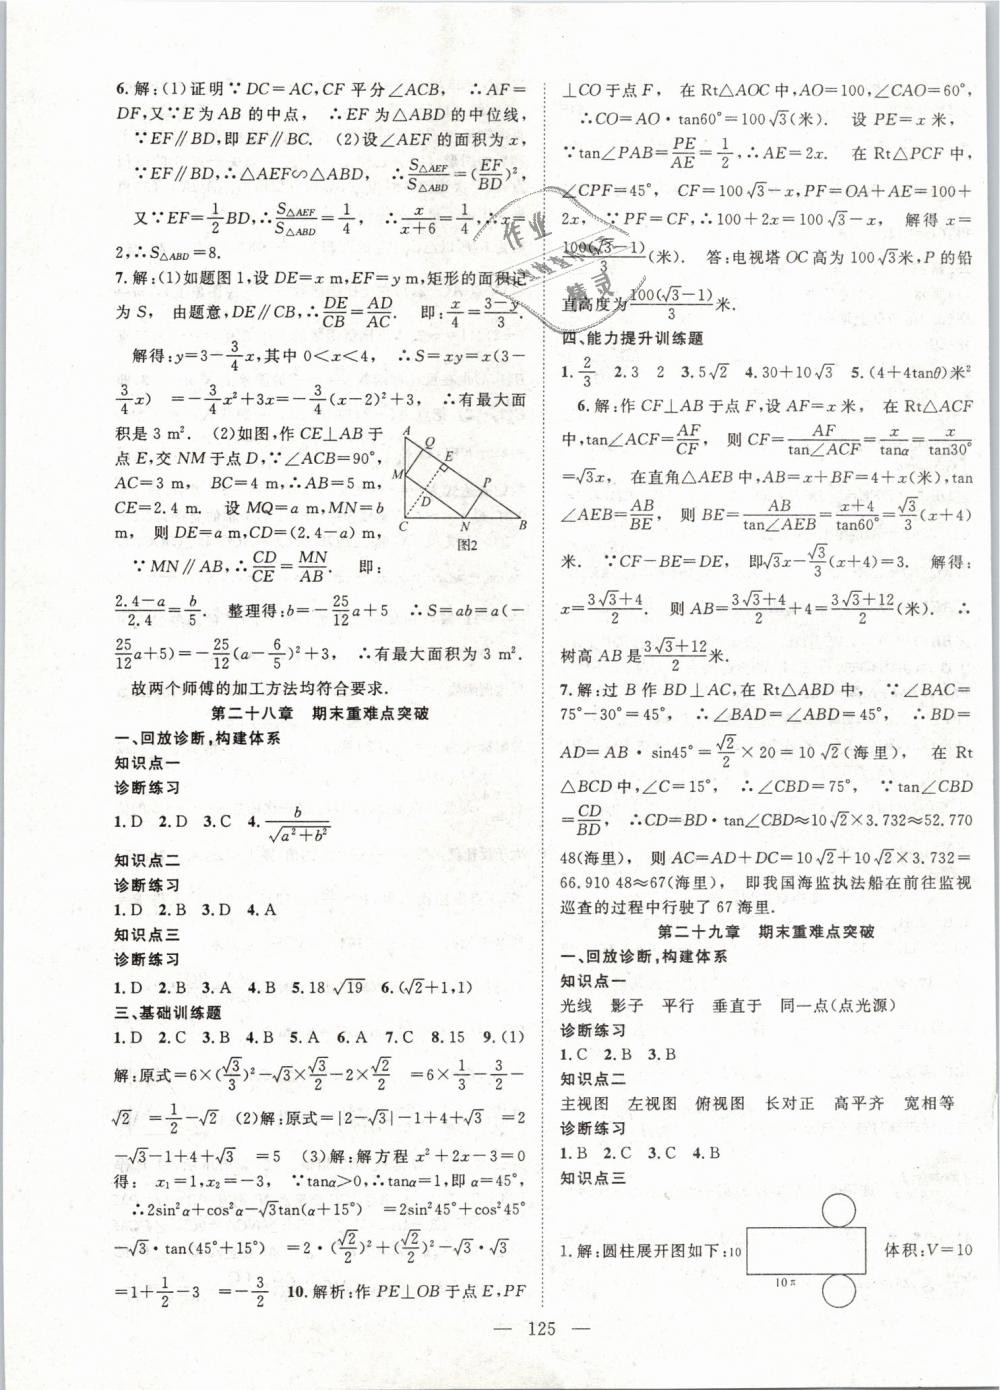 6.解:(1)证明∵DC=AC,CF平分∠ACB, ∴AF=
DF,又∵E为AB的中点, ∴EF为△ABD的中位线,
∵EF∥BD,即EF∥BC. (2)设∠AEF的面积为x,
∵EF∥BD,∴△AEF∽△ABD, ∴S△AEF/S△ABD=(EF/BD)²,
又∵EF=1/2BD,∴S△AEF/S△ABD=1/4, ∴x/(x+6)=1/4,∴x=
2,∴S△ABD=8.
7.解:(1)如题图1,设DE=x m,EF=y m,矩形的面积记
为S, 由题意,DE∥CB,∴DE/CB=AD/AC. 即:x/4=(3-y)/3.
解得:y=3-3/4x,其中0<x<4, ∴S=xy=x(3-
3/4x) =-3/4x²+3x=-3/4(x-2)²+3, ∴有最大面
积是3 m². (2)如图,作CE⊥AB于
点E,交NM于点D,∵∠ACB=90°,
AC=3 m, BC=4 m,∴AB=5 m,
CE=2.4 m. 设MQ=a m,MN=b
m, 则DE=a m,CD=(2.4-a) m,
∵MN∥AB,∴CD/CE=MN/AB. 即:
A Q E M P D C N B
图2
(2.4-a)/2.4=b/5. 整理得:b=-25/12a+5 ∴S=ab=a(-
25/12a+5)=-25/12(a-6/5)²+3, ∴有最大面积为3 m².
故两个师傅的加工方法均符合要求.
第二十八章 期末重难点突破
一、回放诊断,构建体系
知识点一
诊断练习
1.D 2.D 3.C 4.b/√(a²+b²)
知识点二
诊断练习
1.D 2.B 3.D 4.A
知识点三
诊断练习
1.D 2.B 3.A 4.B 5.18 √19 6.(√2+1,1)
三、基础训练题
1.D 2.C 3.B 4.B 5.A 6.A 7.C 8.15 9.(1)
解:原式=6×(√3/3)²-√3×√3/2-2×√2/2 =6×1/3-3/2-
√2 =1/2-√2 (2)解:原式=|2-√3|-1+4+√3 =2
-√3-1+4+√3 =5 (3)解:解方程x²+2x-3=0
得: x₁=1,x₂=-3, ∵tanα>0,∴tanα=1,∴α=45°,
∴2sin²α+cos²α-√3tan(α+15°) =2sin²45°+cos²45°
-√3·tan(45°+15°) =2·(√2/2)²+(√2/2)²-√3·√3
=1+1/2-3 =-3/2 10.解析:作PE⊥OB于点E,PF
⊥CO于点F, 在Rt△AOC中,AO=100,∠CAO=60°,
∴CO=AO·tan60°=100√3(米). 设PE=x米,
∵tan∠PAB=PE/AE=1/2,∴AE=2x. 在Rt△PCF中,
∠CPF=45°, CF=100√3-x,PF=OA+AE=100+
2x, ∵PF=CF,∴100+2x=100√3-x, 解得x=
100(√3-1)/3(米). 答:电视塔OC高为100√3米,P的铅
直高度为100(√3-1)/3米.
四、能力提升训练题
1.2/3 2.3 2 3.5√2 4.30+10√3 5.(4+4tanθ)米²
6.解:作CF⊥AB于点F,设AF=x米, 在Rt△ACF
中,tan∠ACF=AF/CF, 则CF=AF/tan∠ACF=x/tanα=x/tan30°
=√3x(米), 在直角△AEB中,AB=x+BF=4+x(米),tan
∠AEB=AB/BE, 则BE=AB/tan∠AEB=(x+4)/tan60°=√3/3(x+4)
米. ∵CF-BE=DE, 即√3x-√3/3(x+4)=3. 解得:
x=(3√3+4)/2. 则AB=(3√3+4)/2+4=(3√3+12)/2(米). ∴
树高AB是(3√3+12)/2米.
7.解:过B作BD⊥AC,在Rt△ABD中, ∵∠BAC=
75°-30°=45°, ∴∠BAD=∠ABD=45°, ∴BD=
AD=AB·sin45°=√2/2×20=10√2(海里), 在Rt
△BCD中,∠C=15°, ∴∠CBD=75°, ∵tan∠CBD
=CD/BD, ∴CD=BD·tan∠CBD≈10√2×3.732≈52.770
48(海里), 则AC=AD+DC=10√2+10√2×3.732=
66.910 48≈67(海里), 即我国海监执法船在前往监视
巡查的过程中行驶了67海里.
第二十九章 期末重难点突破
一、回放诊断,构建体系
知识点一
光线 影子 平行 垂直于 同一点(点光源)
诊断练习
1.C 2.B 3.B
知识点二
主视图 左视图 俯视图 长对正 高平齐 宽相等
诊断练习
1.B 2.C 3.C 4.B
知识点三
1.解:圆柱展开图如下:10 体积:V=10
10π
— 125 —
作业
精灵